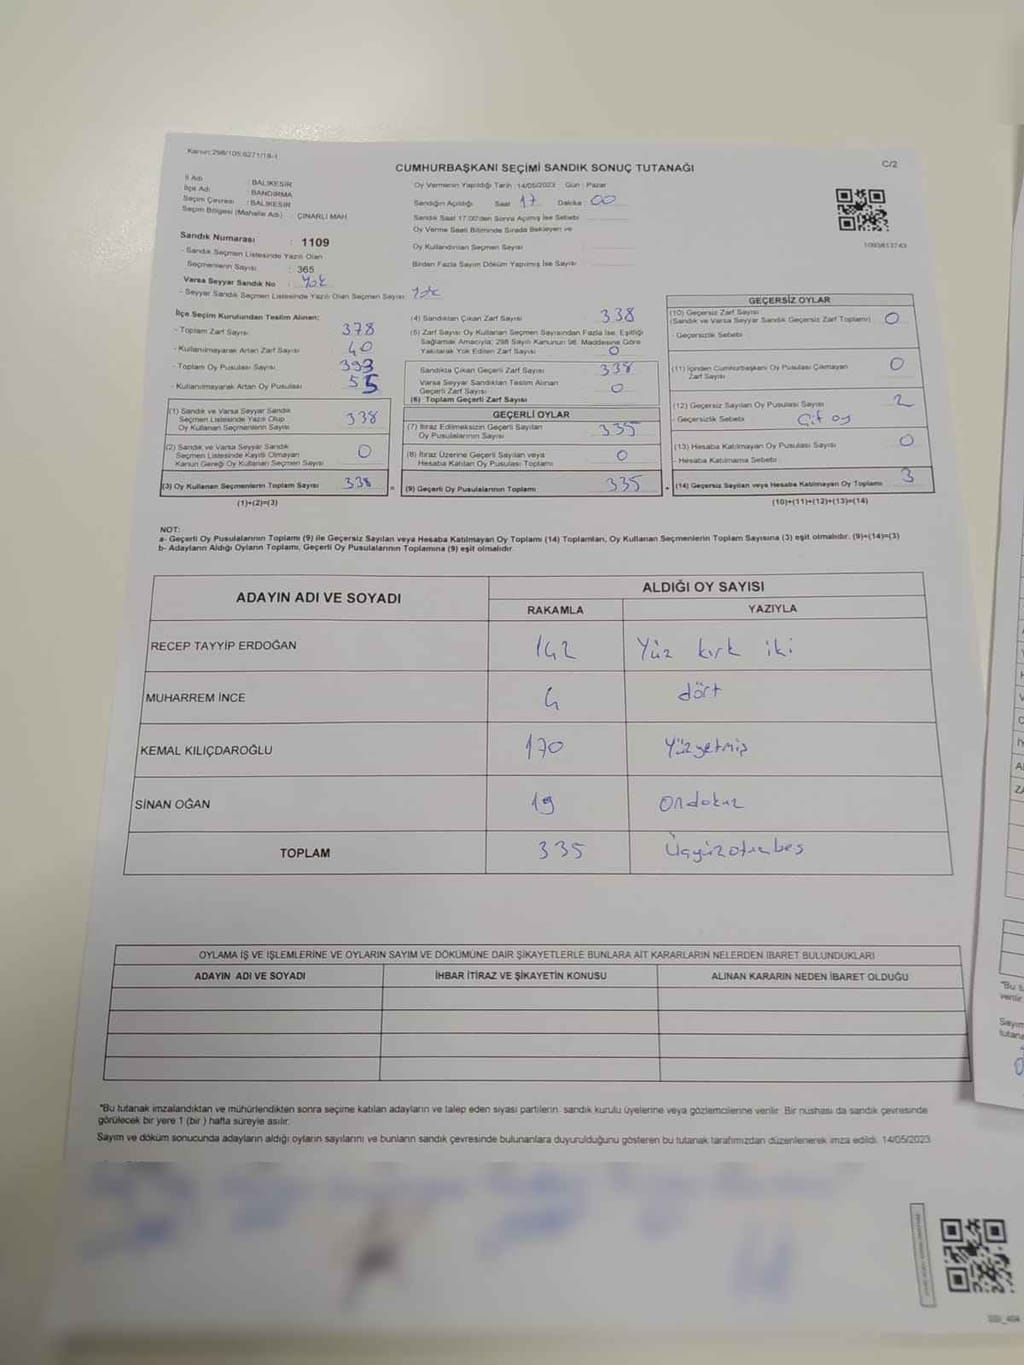 Kanun:298/105,6271/18-1
CUMHURBAŞKANI SEÇİMİ SANDIK SONUÇ TUTANAĞI
C/2
İl Adı : BALIKESİR
İlçe Adı : BANDIRMA
Seçim Çevresi : BALIKESİR
Seçim Bölgesi (Mahalle Adı) : ÇINARLI MAH
Sandık Numarası : 1109
- Sandık Seçmen Listesinde Yazılı Olan
Seçmenlerin Sayısı : 365
Varsa Seyyar Sandık No : Yok
- Seyyar Sandık Seçmen Listesinde Yazılı Olan Seçmen Sayısı: Yok
Oy Vermenin Yapıldığı Tarih :14/05/2023 Gün : Pazar
Sandığın Açıldığı Saat : 17 Dakika : 00
Sandık Saat 17:00'den Sonra Açılmış İse Sebebi
Oy Verme Saati Bitiminde Sırada Bekleyen ve
Oy Kullandırılan Seçmen Sayısı
Birden Fazla Sayım Döküm Yapılmış İse Sayısı
1093813743
İlçe Seçim Kurulundan Teslim Alınan:
- Toplam Zarf Sayısı 378
- Kullanılmayarak Artan Zarf Sayısı 40
- Toplam Oy Pusulası Sayısı 393
- Kullanılmayarak Artan Oy Pusulası 55
(1) Sandık ve Varsa Seyyar Sandık
Seçmen Listesinde Yazılı Olup
Oy Kullanan Seçmenlerin Sayısı 338
(2) Sandık ve Varsa Seyyar Sandık
Seçmen Listesinde Kayıtlı Olmayan
Kanun Gereği Oy Kullanan Seçmen Sayısı 0
(3) Oy Kullanan Seçmenlerin Toplam Sayısı 338
(1)+(2)=(3)
(4) Sandıktan Çıkan Zarf Sayısı 338
(5) Zarf Sayısı Oy Kullanan Seçmen Sayısından Fazla İse, Eşitliği
Sağlamak Amacıyla; 298 Sayılı Kanunun 98. Maddesine Göre
Yakılarak Yok Edilen Zarf Sayısı 0
Sandıkta Çıkan Geçerli Zarf Sayısı 338
Varsa Seyyar Sandıktan Teslim Alınan
Geçerli Zarf Sayısı 0
(6) Toplam Geçerli Zarf Sayısı
GEÇERLİ OYLAR
(7) İtiraz Edilmeksizin Geçerli Sayılan
Oy Pusulalarının Sayısı 335
(8) İtiraz Üzerine Geçerli Sayılan veya
Hesaba Katılan Oy Pusulası Toplamı 0
= (9) Geçerli Oy Pusulalarının Toplamı 335
GEÇERSİZ OYLAR
(10) Geçersiz Zarf Sayısı
(Sandık ve Varsa Seyyar Sandık Geçersiz Zarf Toplamı) 0
- Geçersizlik Sebebi
(11) İçinden Cumhurbaşkanı Oy Pusulası Çıkmayan
Zarf Sayısı 0
(12) Geçersiz Sayılan Oy Pusulası Sayısı 2
- Geçersizlik Sebebi Çift oy
(13) Hesaba Katılmayan Oy Pusulası Sayısı 0
- Hesaba Katılmama Sebebi
+ (14) Geçersiz Sayılan veya Hesaba Katılmayan Oy Toplamı 3
(10)+(11)+(12)+(13)=(14)
NOT:
a- Geçerli Oy Pusulalarının Toplamı (9) ile Geçersiz Sayılan veya Hesaba Katılmayan Oy Toplamı (14) Toplamları, Oy Kullanan Seçmenlerin Toplam Sayısına (3) eşit olmalıdır. (9)+(14)=(3)
b- Adayların Aldığı Oyların Toplamı, Geçerli Oy Pusulalarının Toplamına (9) eşit olmalıdır.
ADAYIN ADI VE SOYADI
ALDIĞI OY SAYISI
RAKAMLA YAZIYLA
RECEP TAYYİP ERDOĞAN 142 Yüz kırk iki
MUHARREM İNCE 4 dört
KEMAL KILIÇDAROĞLU 170 Yüzyetmiş
SİNAN OĞAN 19 ondokuz
TOPLAM 335 Üçyüzotuzbeş
OYLAMA İŞ VE İŞLEMLERİNE VE OYLARIN SAYIM VE DÖKÜMÜNE DAİR ŞİKAYETLERLE BUNLARA AİT KARARLARIN NELERDEN İBARET BULUNDUKLARI
ADAYIN ADI VE SOYADI İHBAR İTİRAZ VE ŞİKAYETİN KONUSU ALINAN KARARIN NEDEN İBARET OLDUĞU
*Bu tutanak imzalandıktan ve mühürlendikten sonra seçime katılan adayların ve talep eden siyasi partilerin sandık kurulu üyelerine veya gözlemcilerine verilir. Bir nüshası da sandık çevresinde
görülecek bir yere 1 (bir) hafta süreyle asılır.
Sayım ve döküm sonucunda adayların aldığı oyların sayılarını ve bunların sandık çevresinde bulunanlara duyurulduğunu gösteren bu tutanak tarafımızdan düzenlenerek imza edildi. 14/05/2023